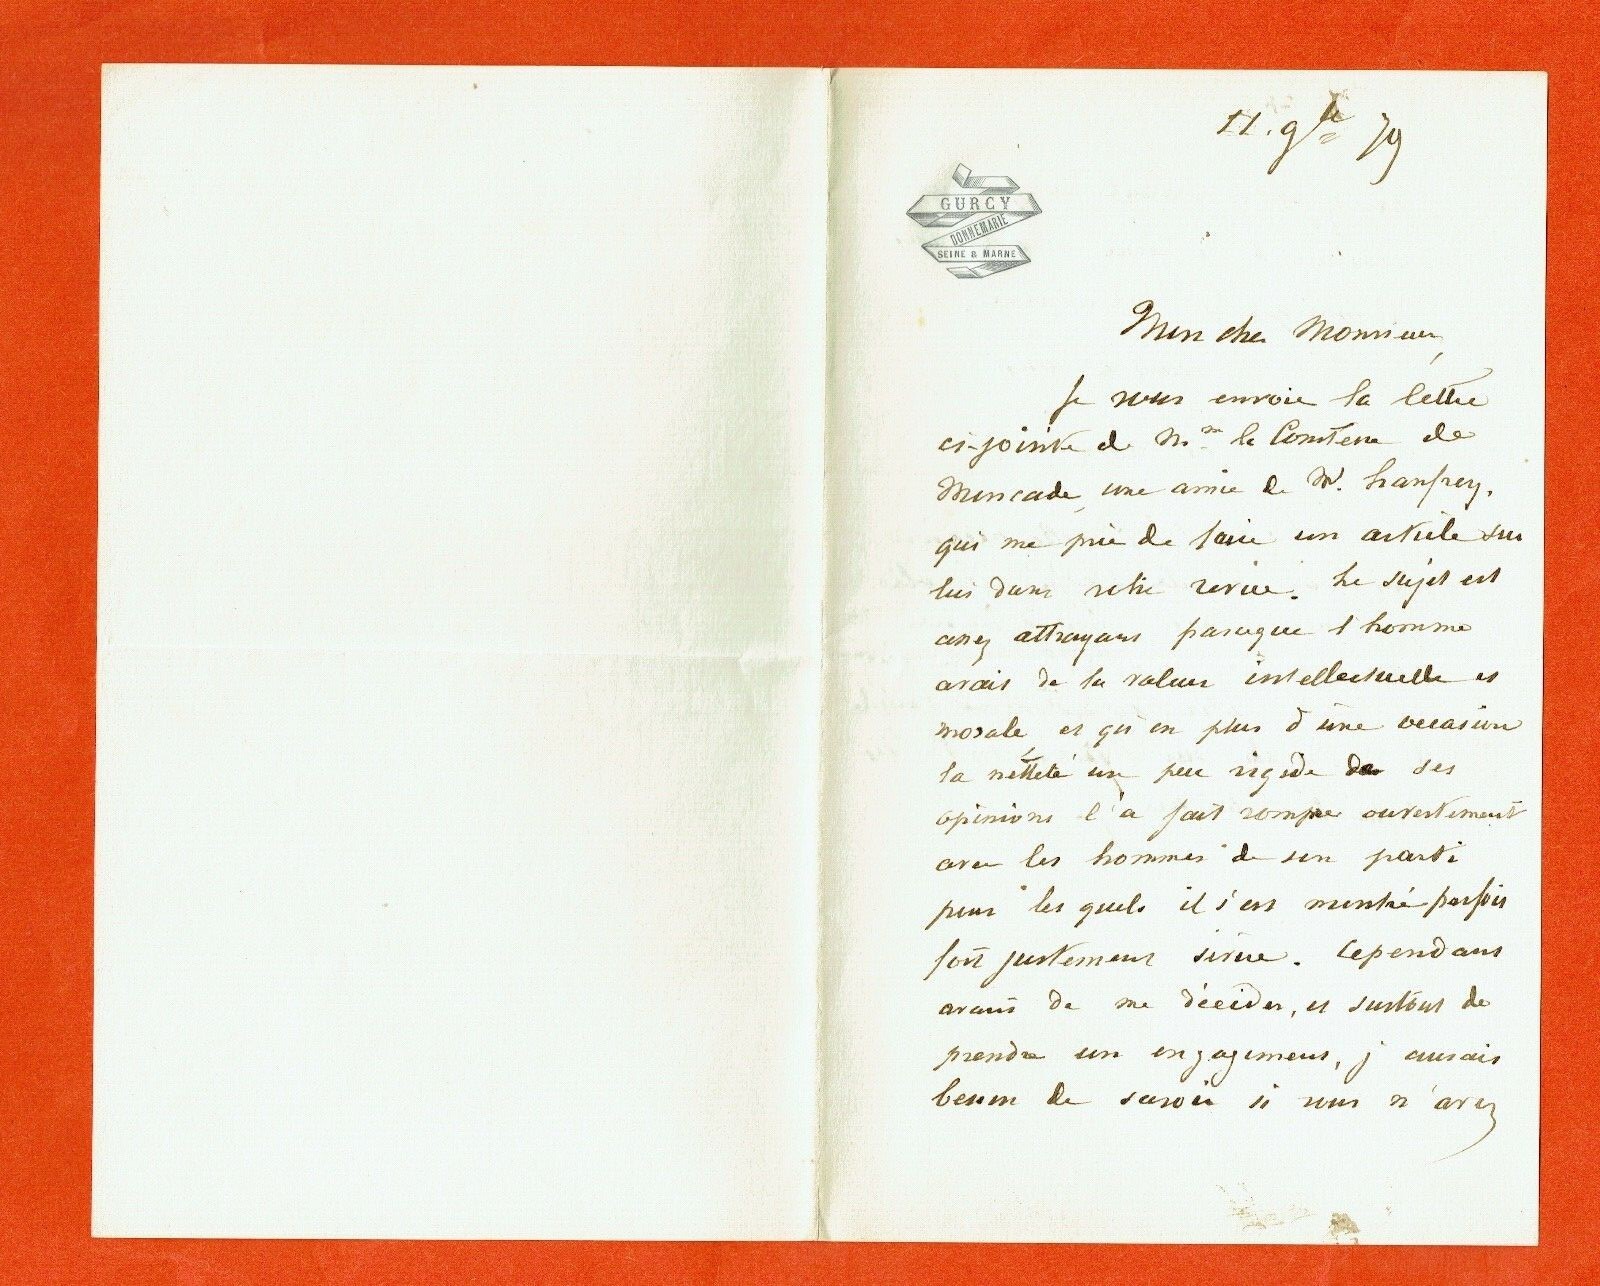 11. 9bre 79
GURCY
DONNEMARIE
SEINE & MARNE
Mon cher Monsieur,
Je vous envoie la lettre
ci-jointe de Mme la Comtesse de
une amie de Mr. Lanfrey,
qui me prie de faire un article sur
lui dans votre revue. Le sujet est
assez attrayant parceque l'homme
avait de la valeur intellectuelle et
morale, et qu'en plus d'une occasion
la netteté un peu rigide de ses
opinions l'a fait rompre ouvertement
avec les hommes de son parti
pour les quels il s'est montré parfois
fort justement sévère. Cependant
avant de me décider, et surtout de
prendre un engagement, j'aurais
besoin de savoir si vous n'avez